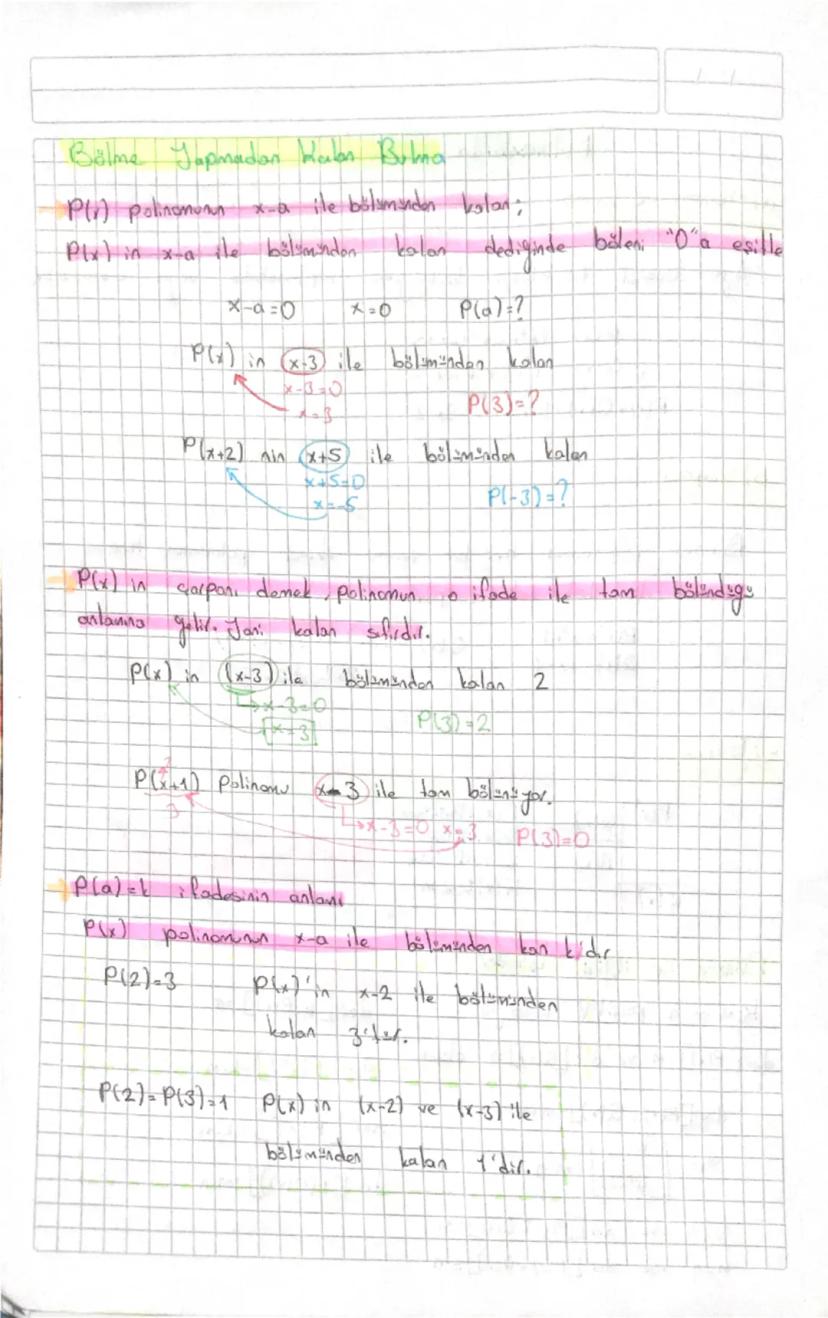 Bölme Yapmadan Kalan Bulma
P(x) polinomunun x-a ile bölümünden kalan;
P(x) in x-a ile bölümünden kalan dediğinde böleni "0"a eşitle
x-a=0 x=0 P(a)=?
P(x) in (x-3) ile bölümünden kalan
x-3=0
x=3 P(3)=?
P(x+2) nin (x+5) ile bölümünden kalan
x+5=0
x=-5 P(-3)=?
P(x) in çarpanı demek, polinomun o ifade ile tam bölündüğü
anlamına gelir. Yani kalan sıfırdır.
P(x) in (x-3) ile bölümünden kalan 2
x-3=0
x=3 P(3)=2
P(x+1) Polinomu x-3 ile tam bölünüyor.
3 x-3=0 x=3 P(3)=0
P(a)=k ifadesinin anlamı
P(x) polinomunun x-a ile bölümünden kan k'dır
P(2)=3 P(x)'in x-2 ile bölümünden
kalan 3'tür.
P(2)=P(3)=1 P(x) in (x-2) ve (x-3) ile
bölümünden kalan 1'dir.